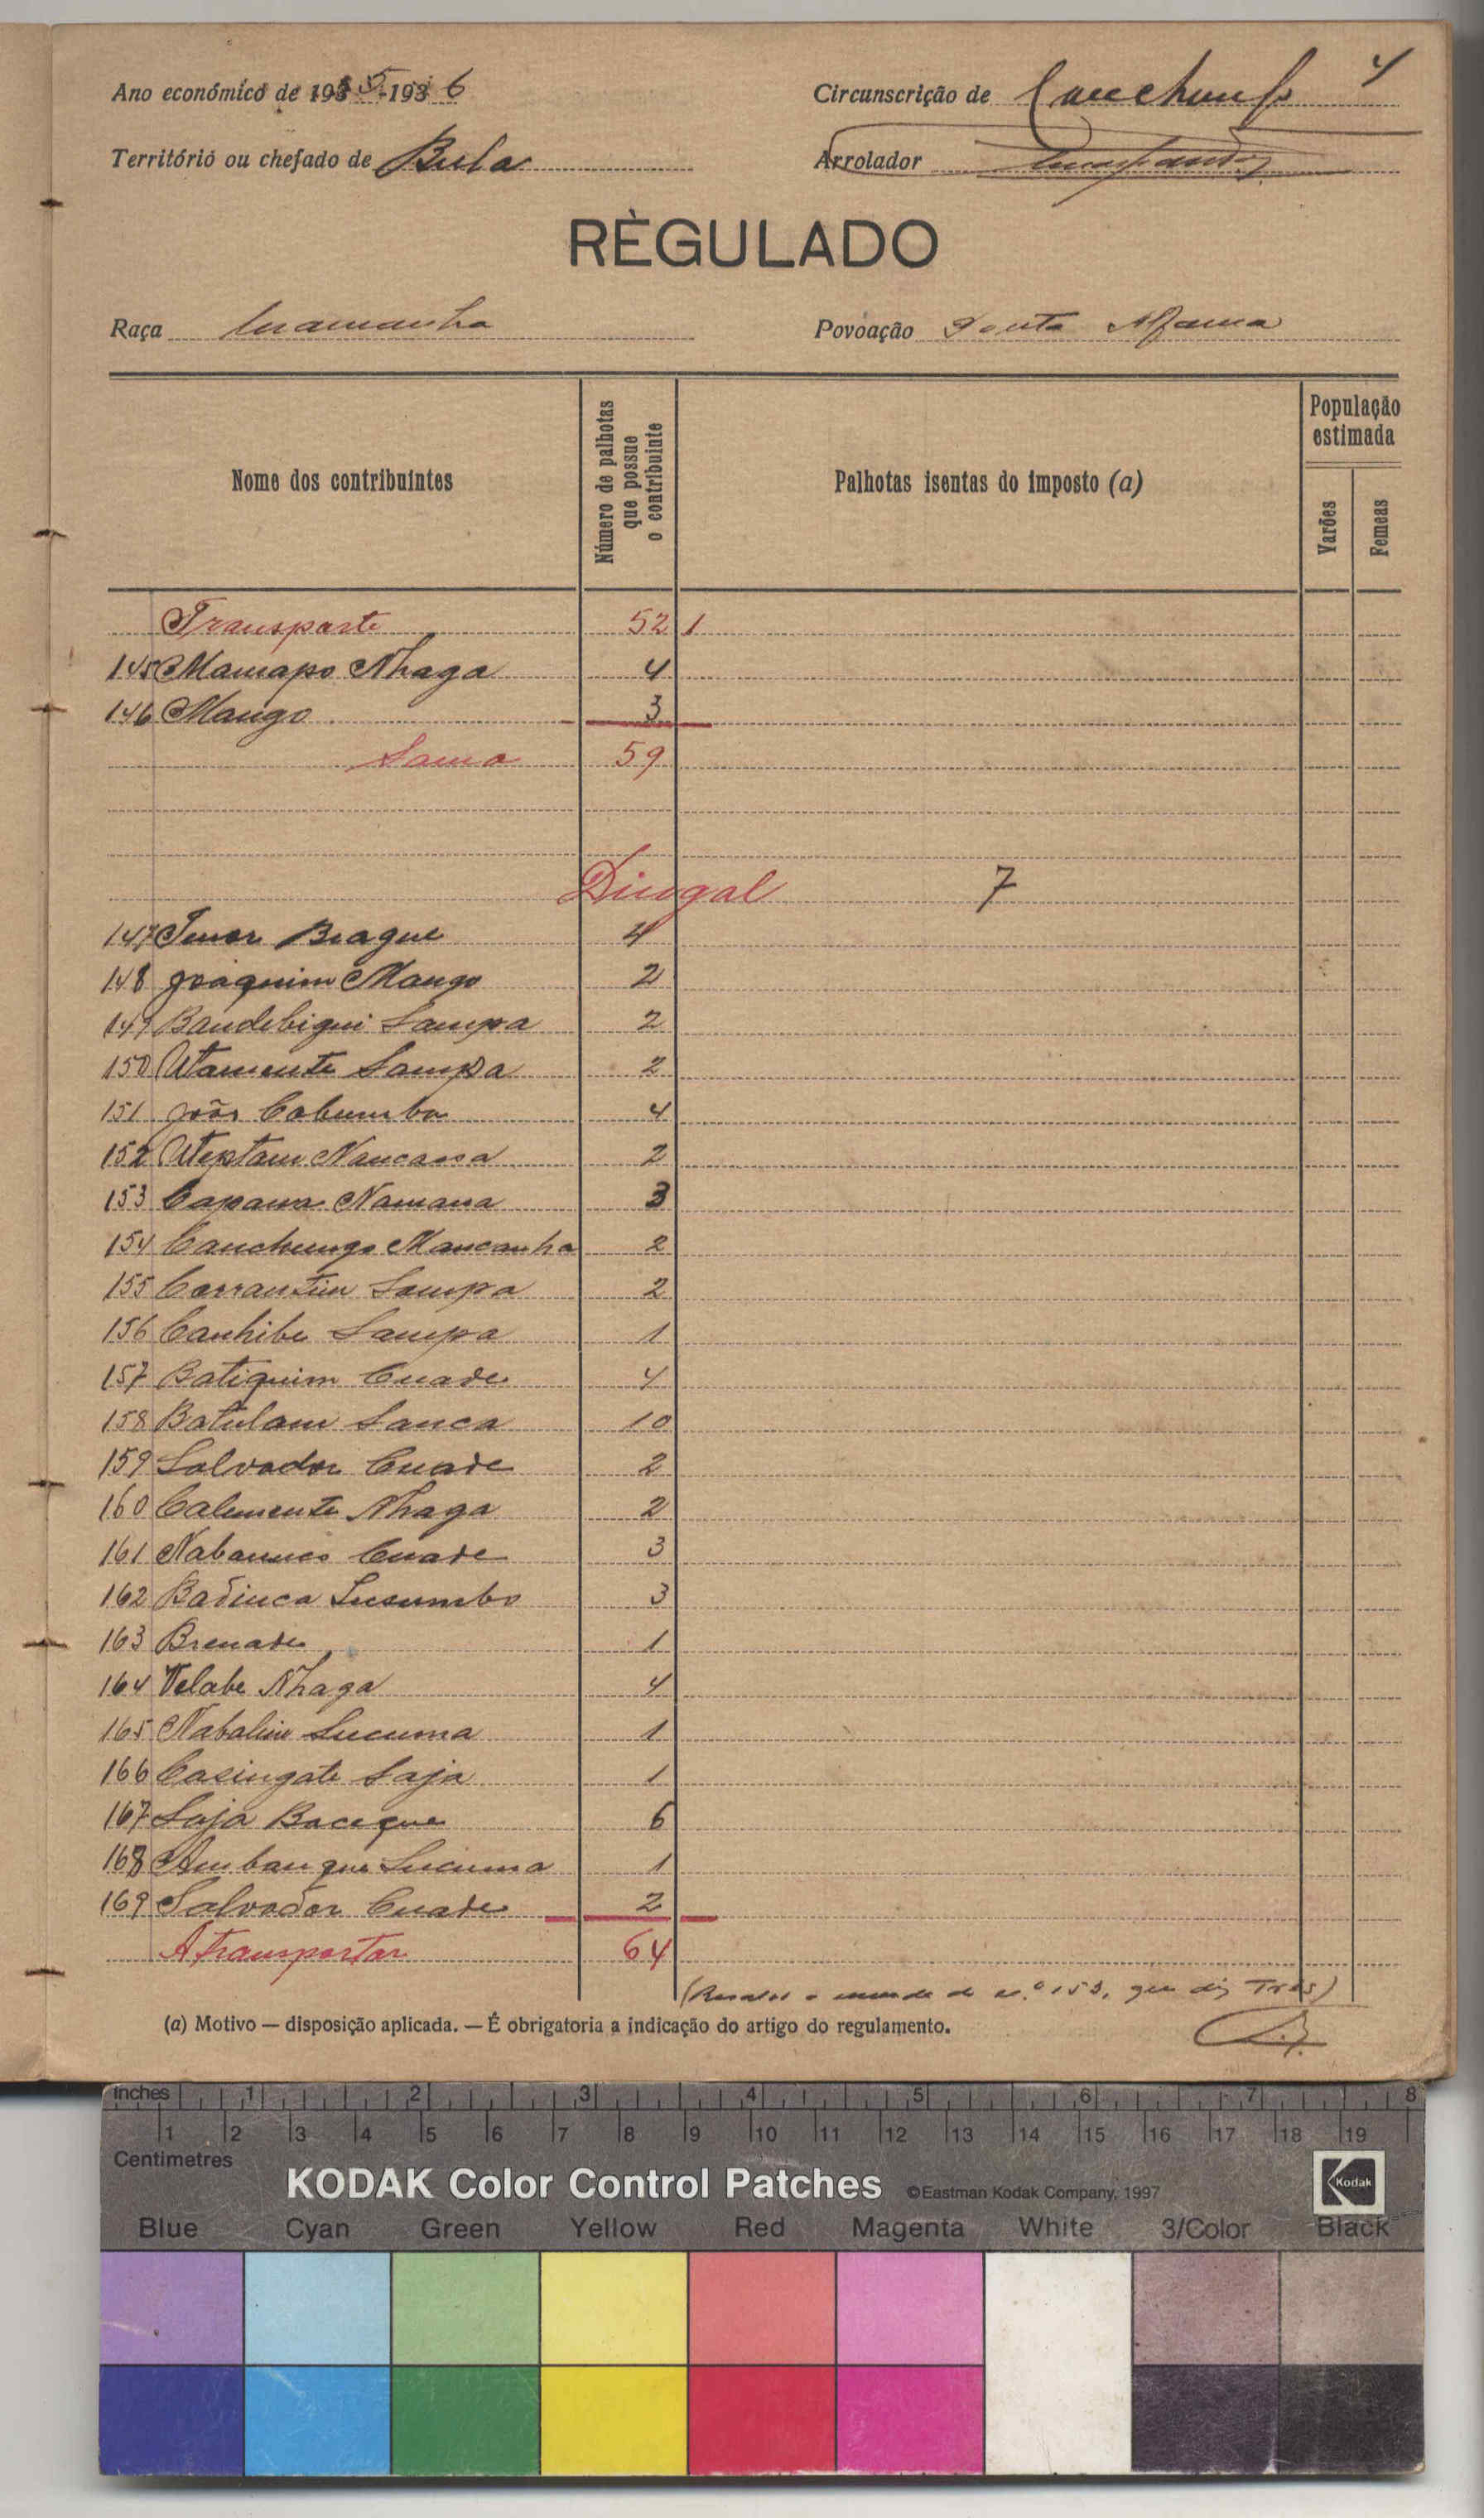 Ano económico de 1935-1936
Circunscrição de Canchungo 4
Território ou chefado de Bula
Arrolador
RÈGULADO
Raça Mancanha
Povoação Ponta
Nome dos contribuintes
Número de palhotas que possue o contribuinte
Palhotas isentas do imposto (a)
População estimada
Varões
Femeas
Transporte 52 1
145 Mamapo Nhaga 4
146 Mango 3
Soma 59
Dingal 7
147 Tenar Biague 4
148 Joaquim Mango 2
149 Bandebiqui Sampa 2
150 Utamente Sampa 2
151 João Cabumba 4
152 Uteptam Nancassa 2
153 Capana Namana 3
154 Canchungo Mancanha 2
155 Carrantim Sampa 2
156 Canhibe Sampa 1
157 Batiquim Cuade 4
158 Batulam Sanca 10
159 Salvador Cuade 2
160 Calemente Nhaga 2
161 Cuade 3
162 Badinca Lusumbo 3
163 Brenade 1
164 Velabe Nhaga 4
165 Nabalim Lucuma 1
166 Casingate Saja 1
167 Saja Baceque 6
168 Ambanque Lucuma 1
169 Salvador Cuade 2
A transportar 64
(Ressalvo a emenda do n.º 153, que diz Três)
(a) Motivo — disposição aplicada. — É obrigatoria a indicação do artigo do regulamento.
inches 1 2 3 4 5 6 7 8
1 2 3 4 5 6 7 8 9 10 11 12 13 14 15 16 17 18 19
Centimetres
KODAK Color Control Patches ©Eastman Kodak Company, 1997 Kodak
Blue Cyan Green Yellow Red Magenta White 3/Color Black